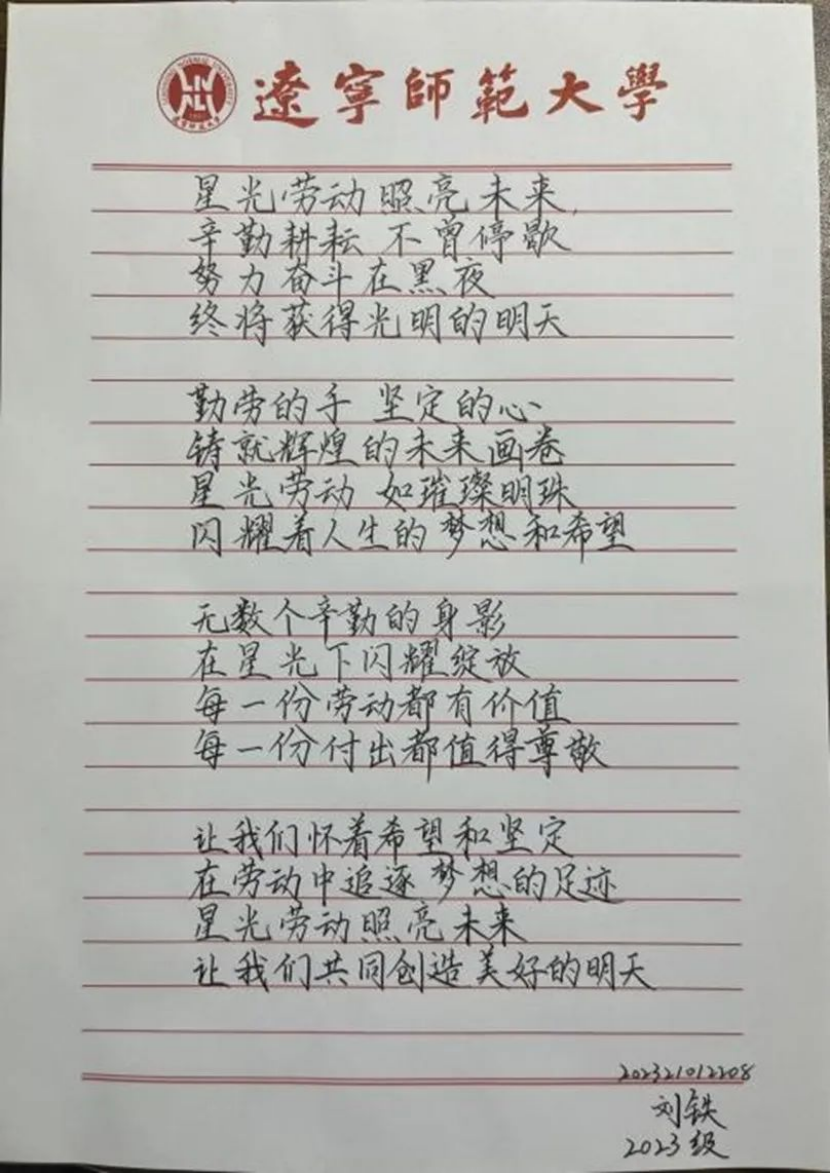 遼寧師範大學
星光劳动照亮未来,
辛勤耕耘 不曾停歇
努力奋斗在黑夜
终将获得光明的明天
勤劳的手 坚定的心
铸就辉煌的未来画卷
星光劳动 如璀璨明珠
闪耀着人生的梦想和希望
无数个辛勤的身影
在星光下闪耀绽放
每一份劳动都有价值
每一份付出都值得尊敬
让我们怀着希望和坚定
在劳动中追逐梦想的足迹
星光劳动照亮未来
让我们共同创造美好的明天
202321012208
刘铁
2023级